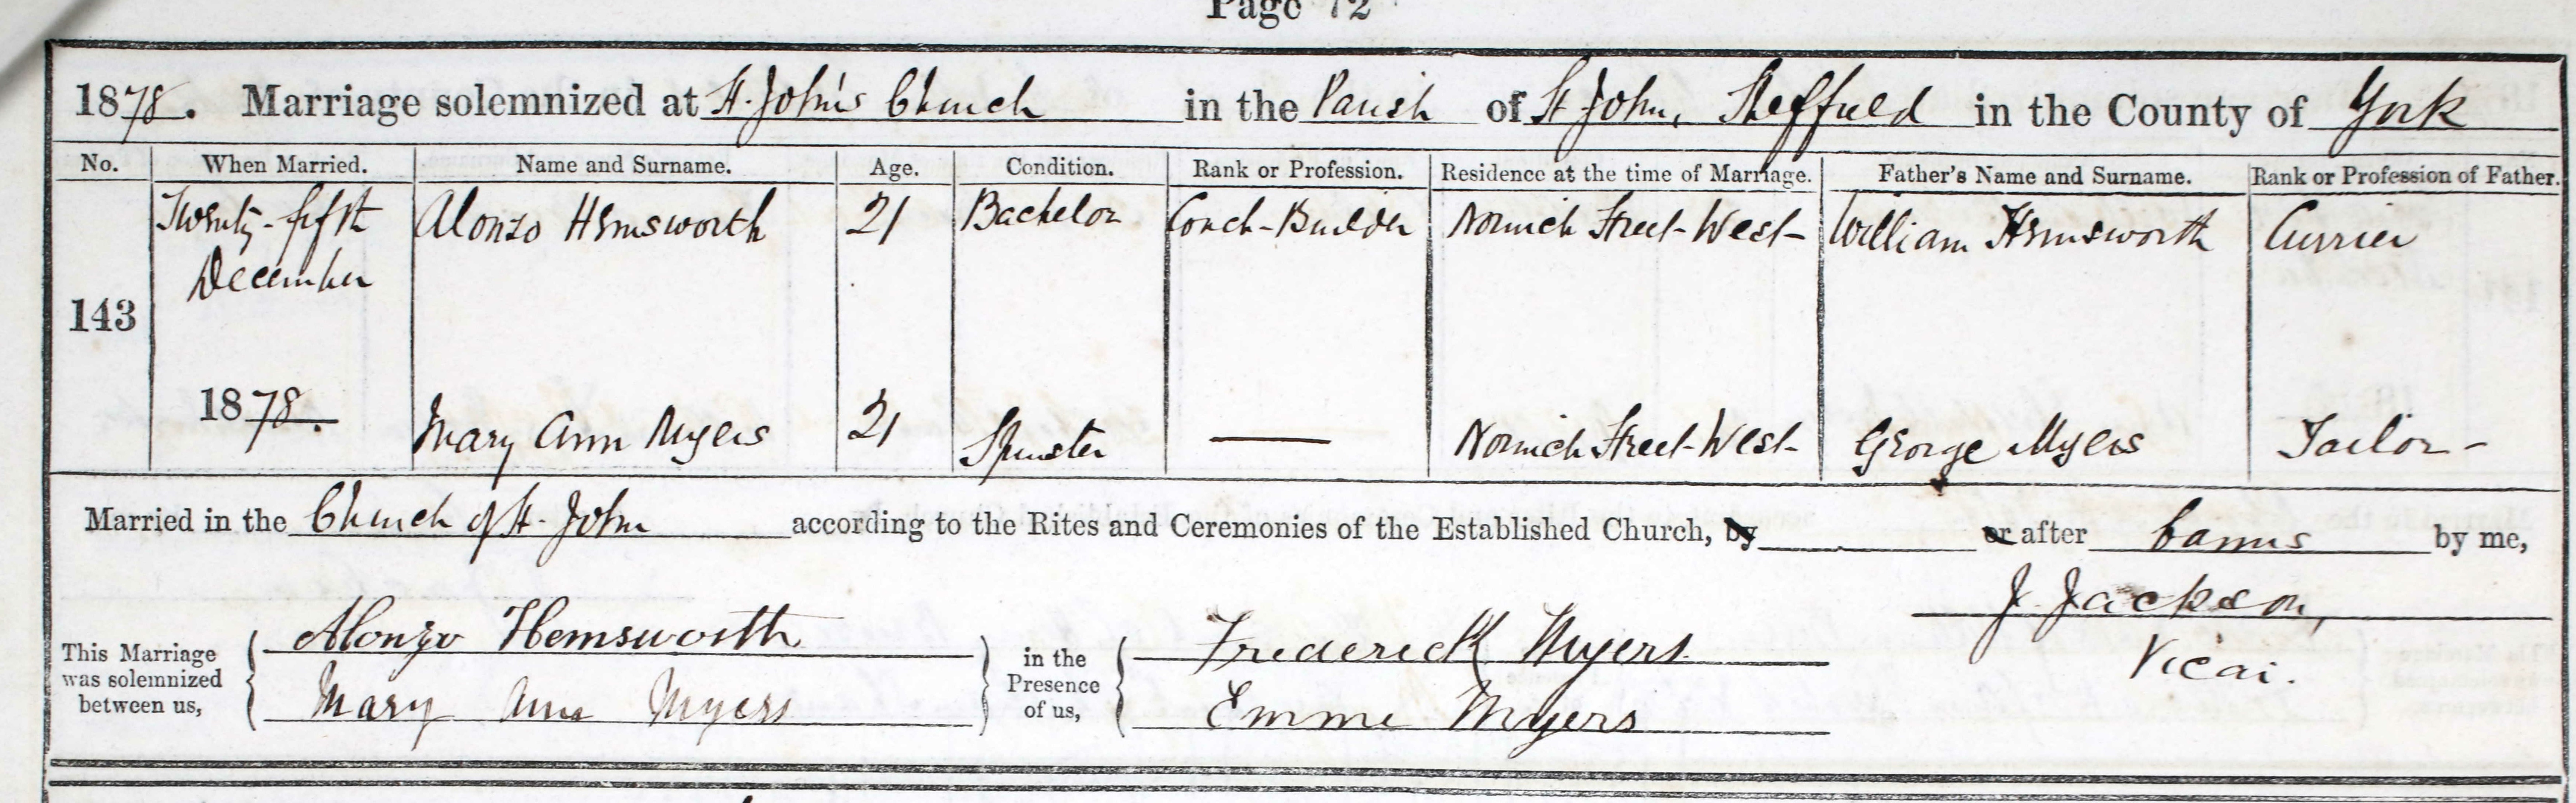 Page 72
1878. Marriage solemnized at St. John's Church in the Parish of St John, Sheffield in the County of York
No. When Married. Name and Surname. Age. Condition. Rank or Profession. Residence at the time of Marriage. Father's Name and Surname. Rank or Profession of Father.
Twenty-fifth Alonzo Hemsworth 21 Bachelor Coach-Builder Norwich Street West William Hemsworth Currier
December
143
1878. Mary Ann Myers 21 Spinster — Norwich Street West George Myers Tailor
Married in the Church of St. John according to the Rites and Ceremonies of the Established Church, by or after banns by me,
J. Jackson,
Vicar.
This Marriage was solemnized between us, Alonzo Hemsworth
Mary Ann Myers
in the Presence of us, Frederick Myers
Emma Myers